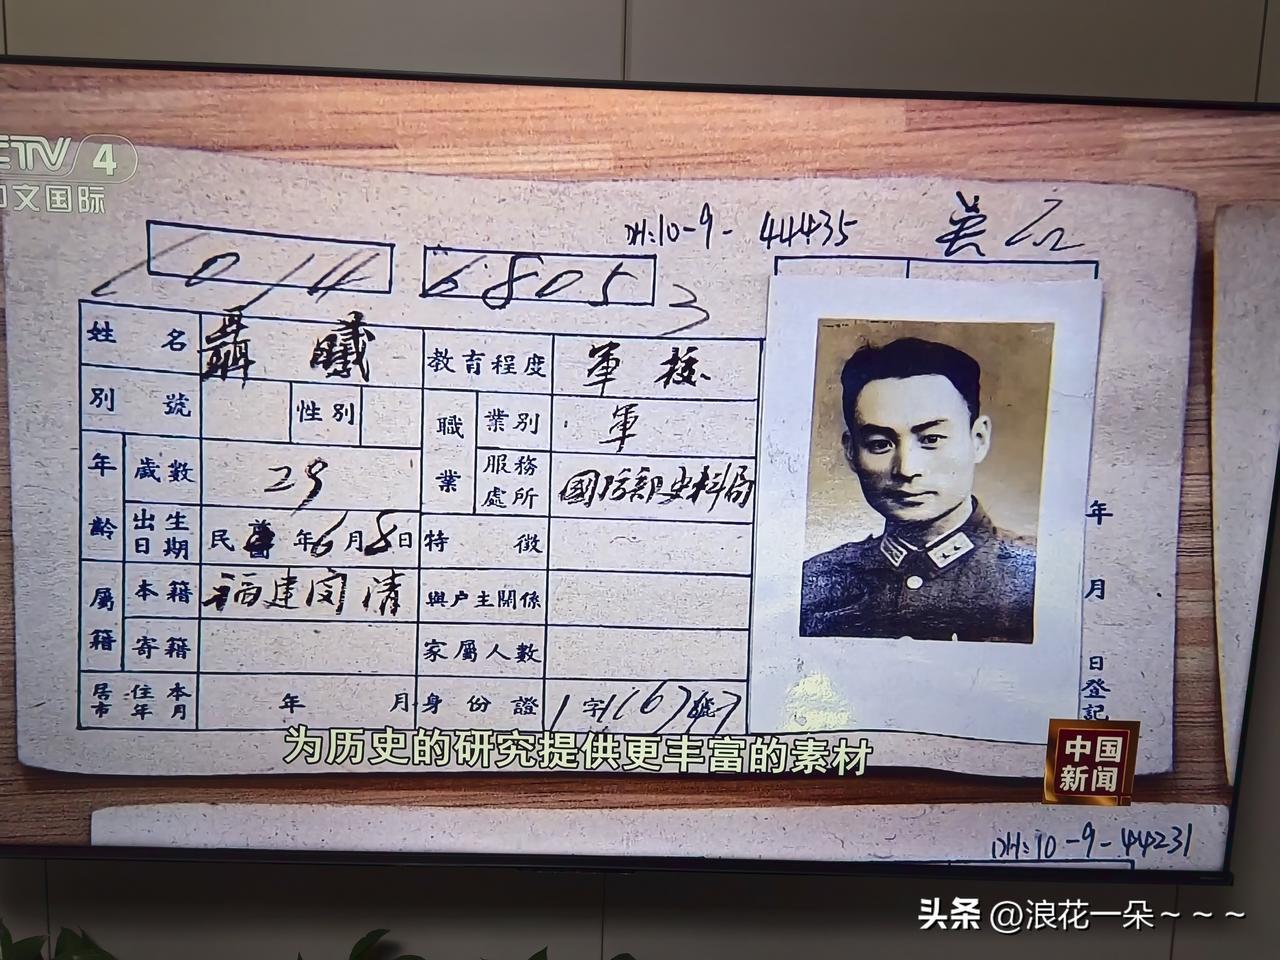 CTV 4
中文国际
DH:10-9-44435
1014 6805 3
姓名 聶曦 教育程度 軍校
別號 性別 職業 業別 軍
年齡 歲數 29 服務處所 國防部史料局
出生日期 民 年6月8日 特徵
屬籍 本籍 福建閩清 與戶主關係
寄籍 家屬人數
居住本市年月 年 月 身份證 字 號
年 月 日登記
为历史的研究提供更丰富的素材
中国新闻
DH:10-9-44231
头条 @浪花一朵~~~